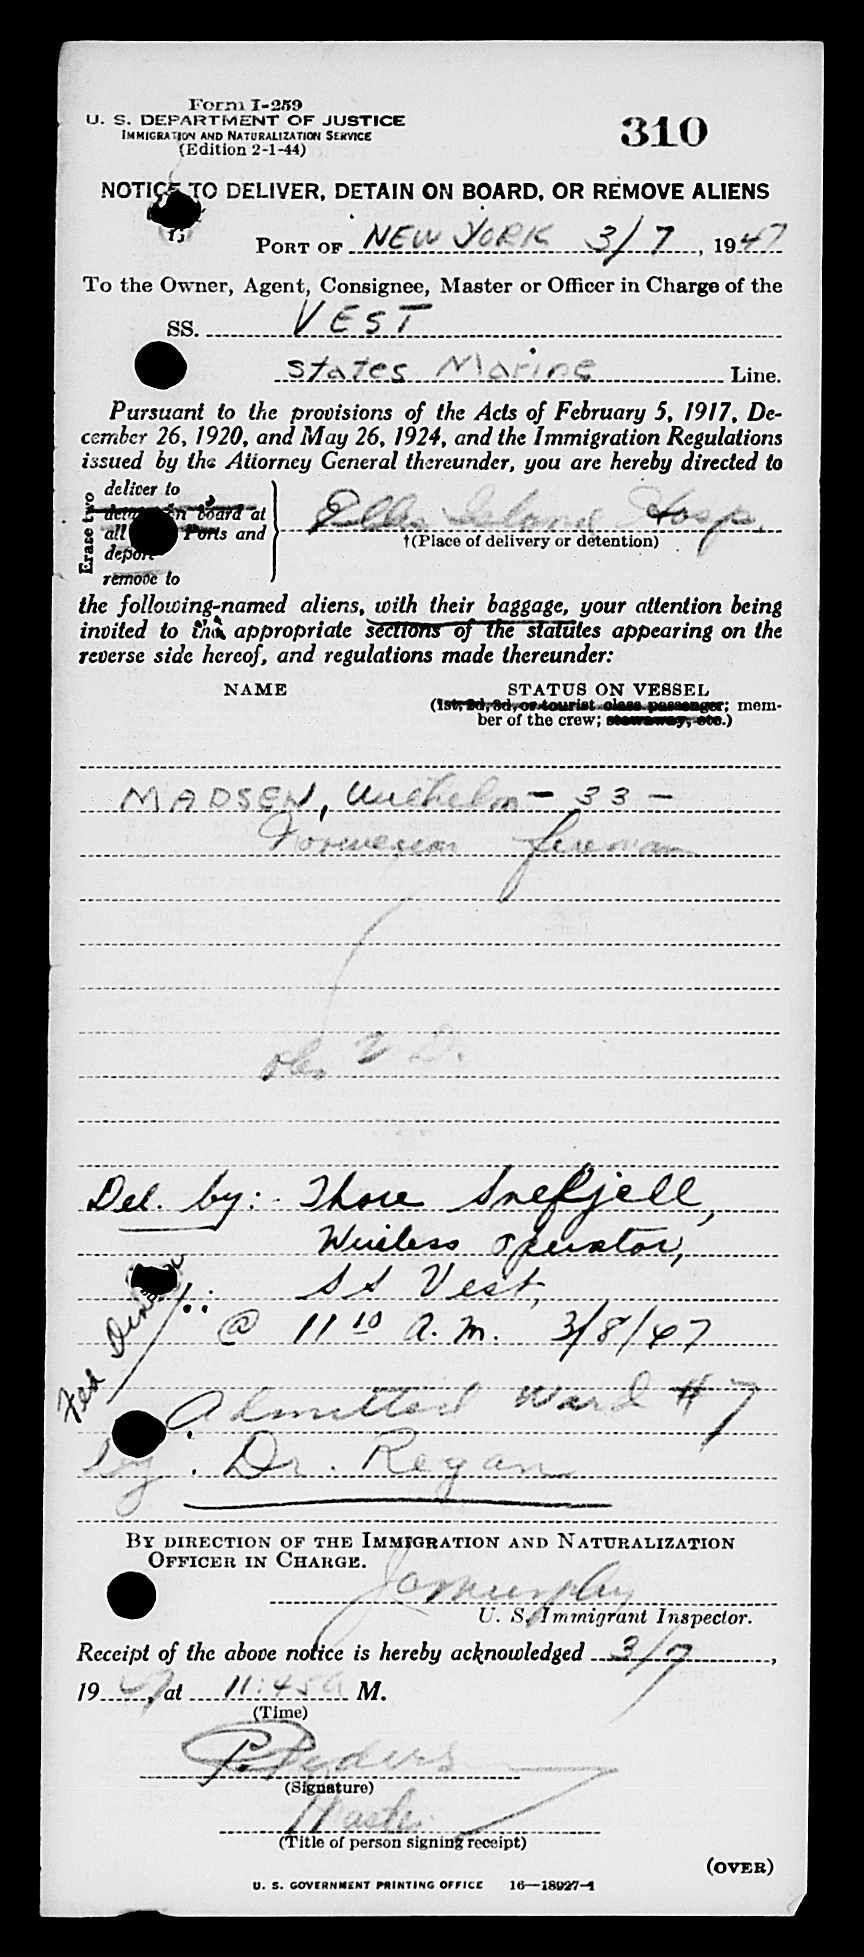 Form I-259
U. S. DEPARTMENT OF JUSTICE
IMMIGRATION AND NATURALIZATION SERVICE
(Edition 2-1-44)
310
NOTICE TO DELIVER, DETAIN ON BOARD, OR REMOVE ALIENS
PORT OF NEW YORK 3/7, 1947
To the Owner, Agent, Consignee, Master or Officer in Charge of the
SS. VEST
States Marine Line.
Pursuant to the provisions of the Acts of February 5, 1917, De-
cember 26, 1920, and May 26, 1924, and the Immigration Regulations
issued by the Attorney General thereunder, you are hereby directed to
Erase two
deliver to
detain on board at
all Ports and
deport
remove to
Ellis Island Hosp.
†(Place of delivery or detention)
the following-named aliens, with their baggage, your attention being
invited to the appropriate sections of the statutes appearing on the
reverse side hereof, and regulations made thereunder:
NAME
STATUS ON VESSEL
(1st, 2d, 3d, or tourist class passenger; mem-
ber of the crew; stowaway, etc.)
MADSEN, Wilhelm - 33 -
Norwegian fireman
obs V D.
Del. by: - Thore Snefjell,
Wireless Operator,
SS Vest,
@ 11 10 A. M. 3/8/47
Fed Dinner
Admitted Ward #7
by. Dr. Regan
BY DIRECTION OF THE IMMIGRATION AND NATURALIZATION
OFFICER IN CHARGE.
U. S. Immigrant Inspector.
Receipt of the above notice is hereby acknowledged 3/7,
1947, at 11:45 a M.
(Time)
(Signature)
Master
(Title of person signing receipt)
(OVER)
U. S. GOVERNMENT PRINTING OFFICE 16—18927-1